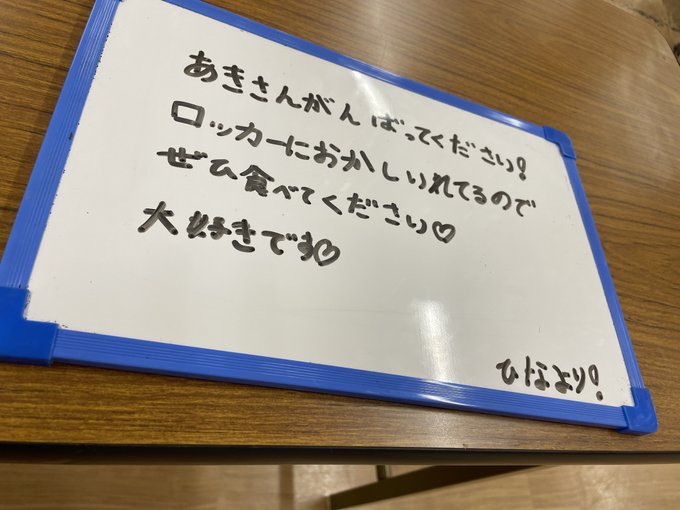 あきさんがんばってください!
ロッカーにおかしいれてるので
ぜひ食べてください♡
大好きです♡
ひなより!